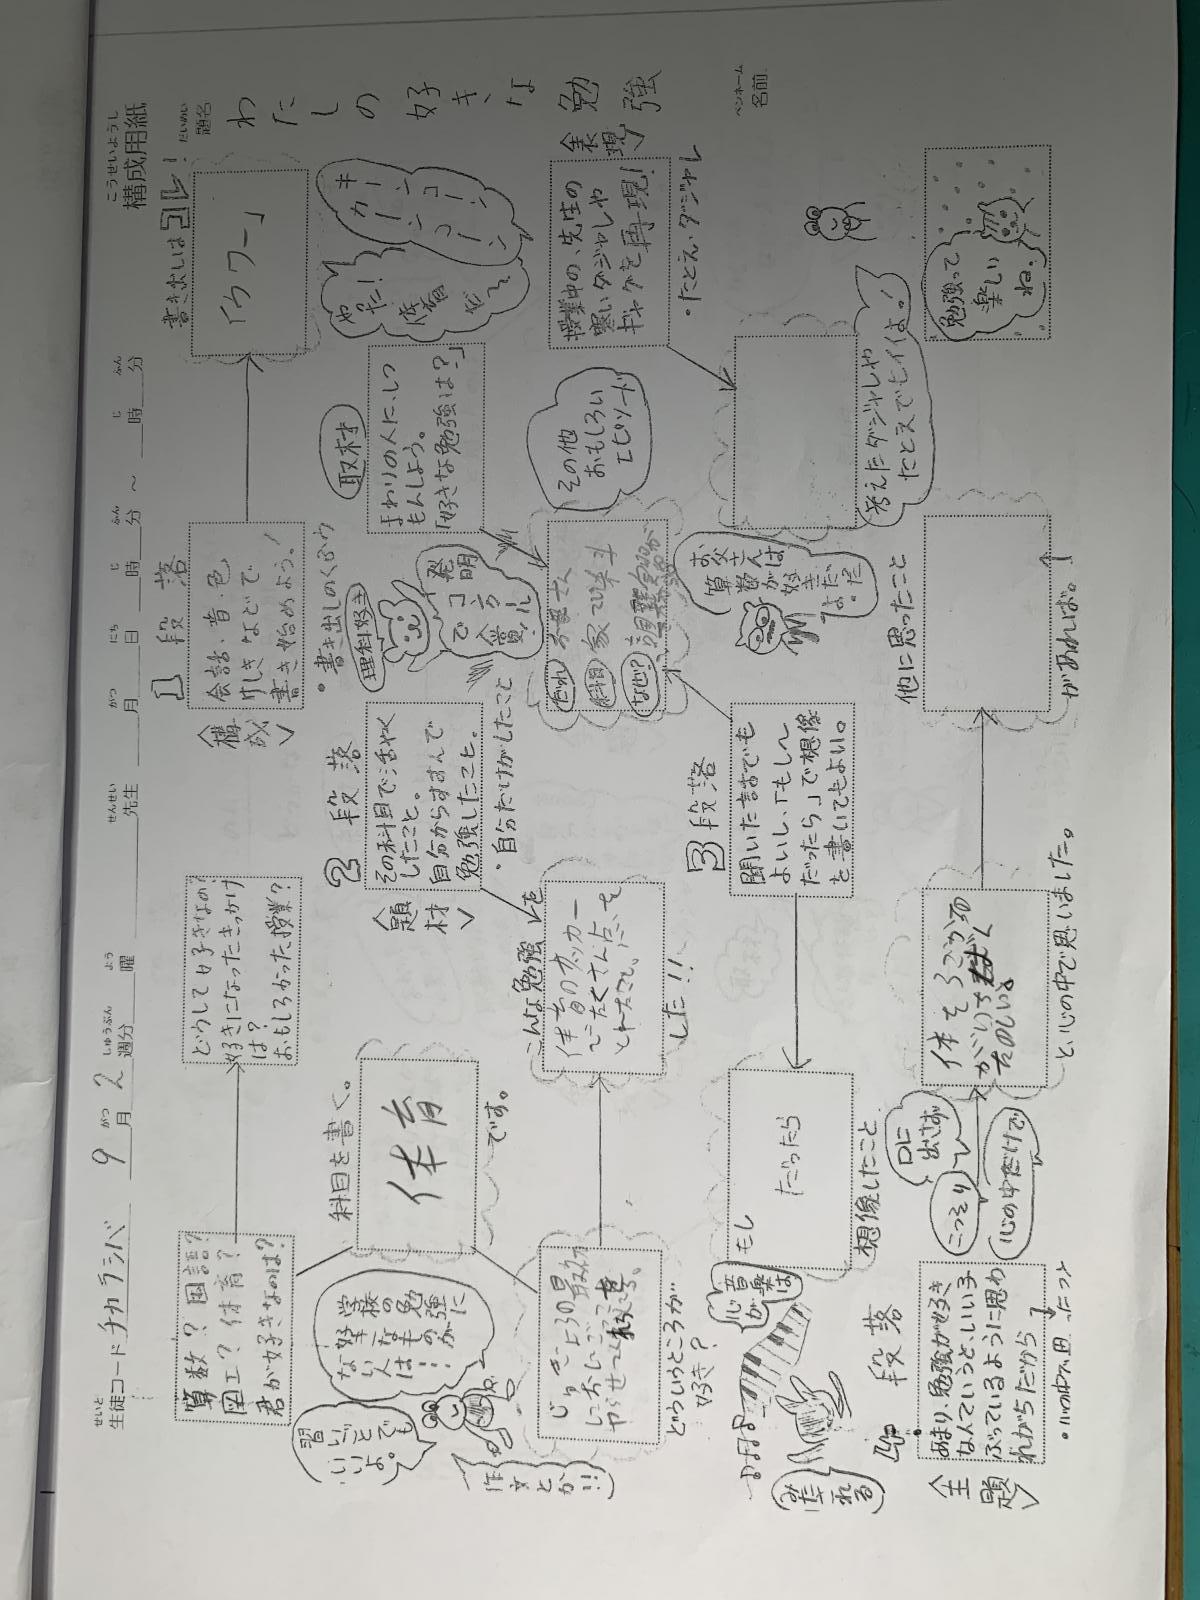 こうせいようし
構成用紙
せいと
生徒コード チカラシバ 9 がつ 月 2 しゅうぶん 週分 よう 曜 せんせい 先生 がつ 月 にち 日 じ 時 ふん 分 ～ じ 時 ふん 分
だいめい
題名
わたしの好きな勉強
ペンネーム
名前
書き出しはコレ!
1段落
〈構成〉
会話・音・色
けしきなどで
書き始めよう!
・書き出しのくふう
「イウワー」
やった!
体育
だ~
キーンコーン
カーンコーン
算数?国語?
図工?体育?
君が好きなのは?
どうして好きなの?
好きになったきっかけ
は?
おもしろかった授業?
科目を書く。
体育
です。
学校の勉強に
好きなものが
ない人は…
習いごとでも
いいよ。
作文とか!!
2段落
〈題材〉
その科目で活やく
したこと。
自分からすすんで
勉強したこと。
・自分だけがしたこと
取材
まわりの人に、しつ
もんしよう。
「好きな勉強は?」
理科好き
発明
で
コンクール
入賞!!
どういうところが
好き?
こんな勉強
を
体育のサッカー
でたくさん点を
とれて、
した!!
だれ
科目
なぜ?
その他
おもしろい
エピソード
お父さんは
算数が
好き
だった
よ。
〈表現〉
授業中の、先生の
寒いダジャレや
ギャグを再現!
・たとえ・ダジャレ
考えたダジャレや
たとえでもイイよ!
3段落
聞いた話でも
よいし、「もし~
だったら」で想像
を書いてもよい。
もし
だったら
想像したこと
心音
が楽
は
みだれる
4段落
〈主題〉
あまり、勉強が好き
なんていうと、いい子
ぶっているように思わ
れがちだから
・心の中で思った
口に
出さず
こっそり
心の中だけで
体を
たのしい。
と、心の中で思いました。
他に思ったこと
があれば。
勉強って
楽しい
ね。